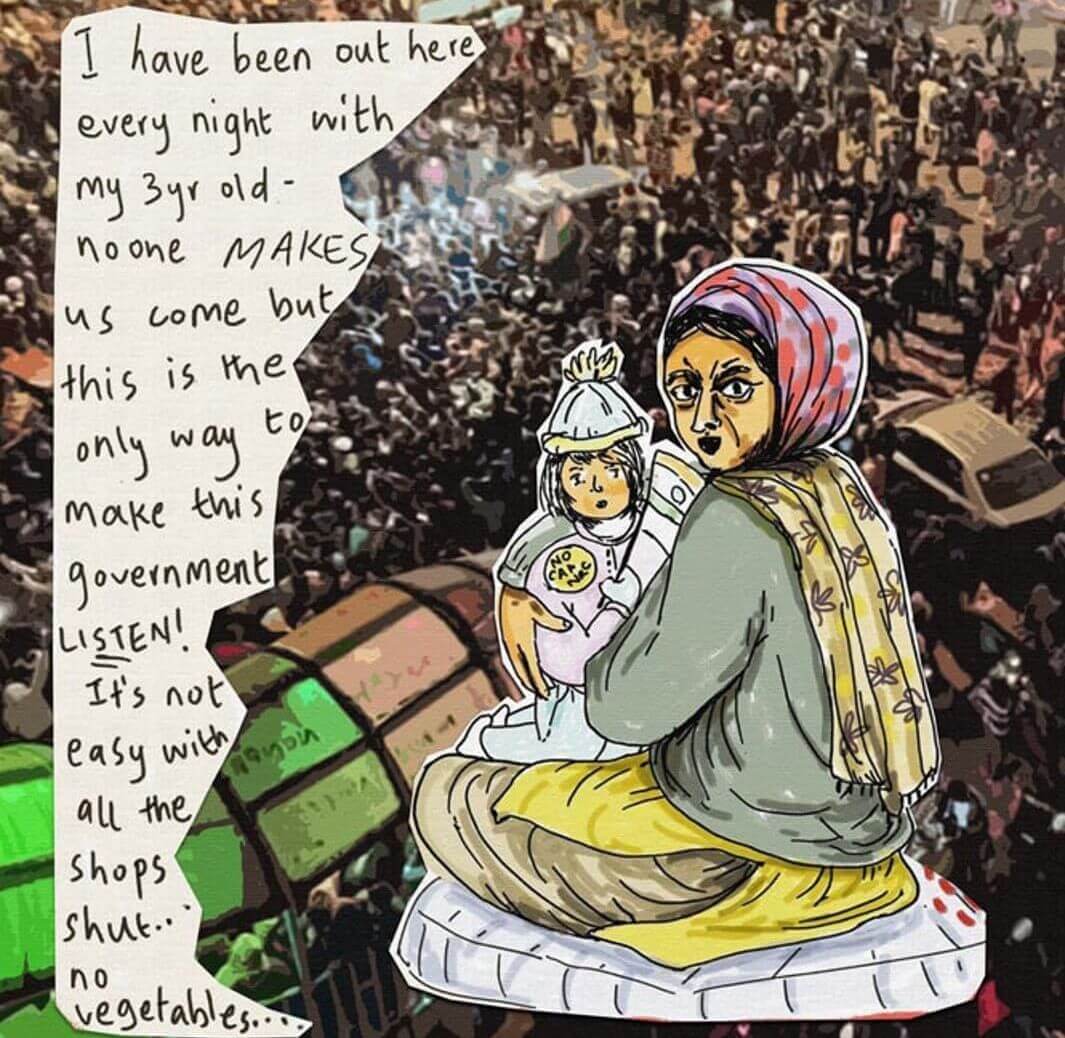 I have been out here
every night with
my 3yr old -
no one MAKES
us come but
this is the
only way to
make this
government
LISTEN!
It's not
easy with
all the
shops
shut..
no
vegetables....
NO
CAA
NRC